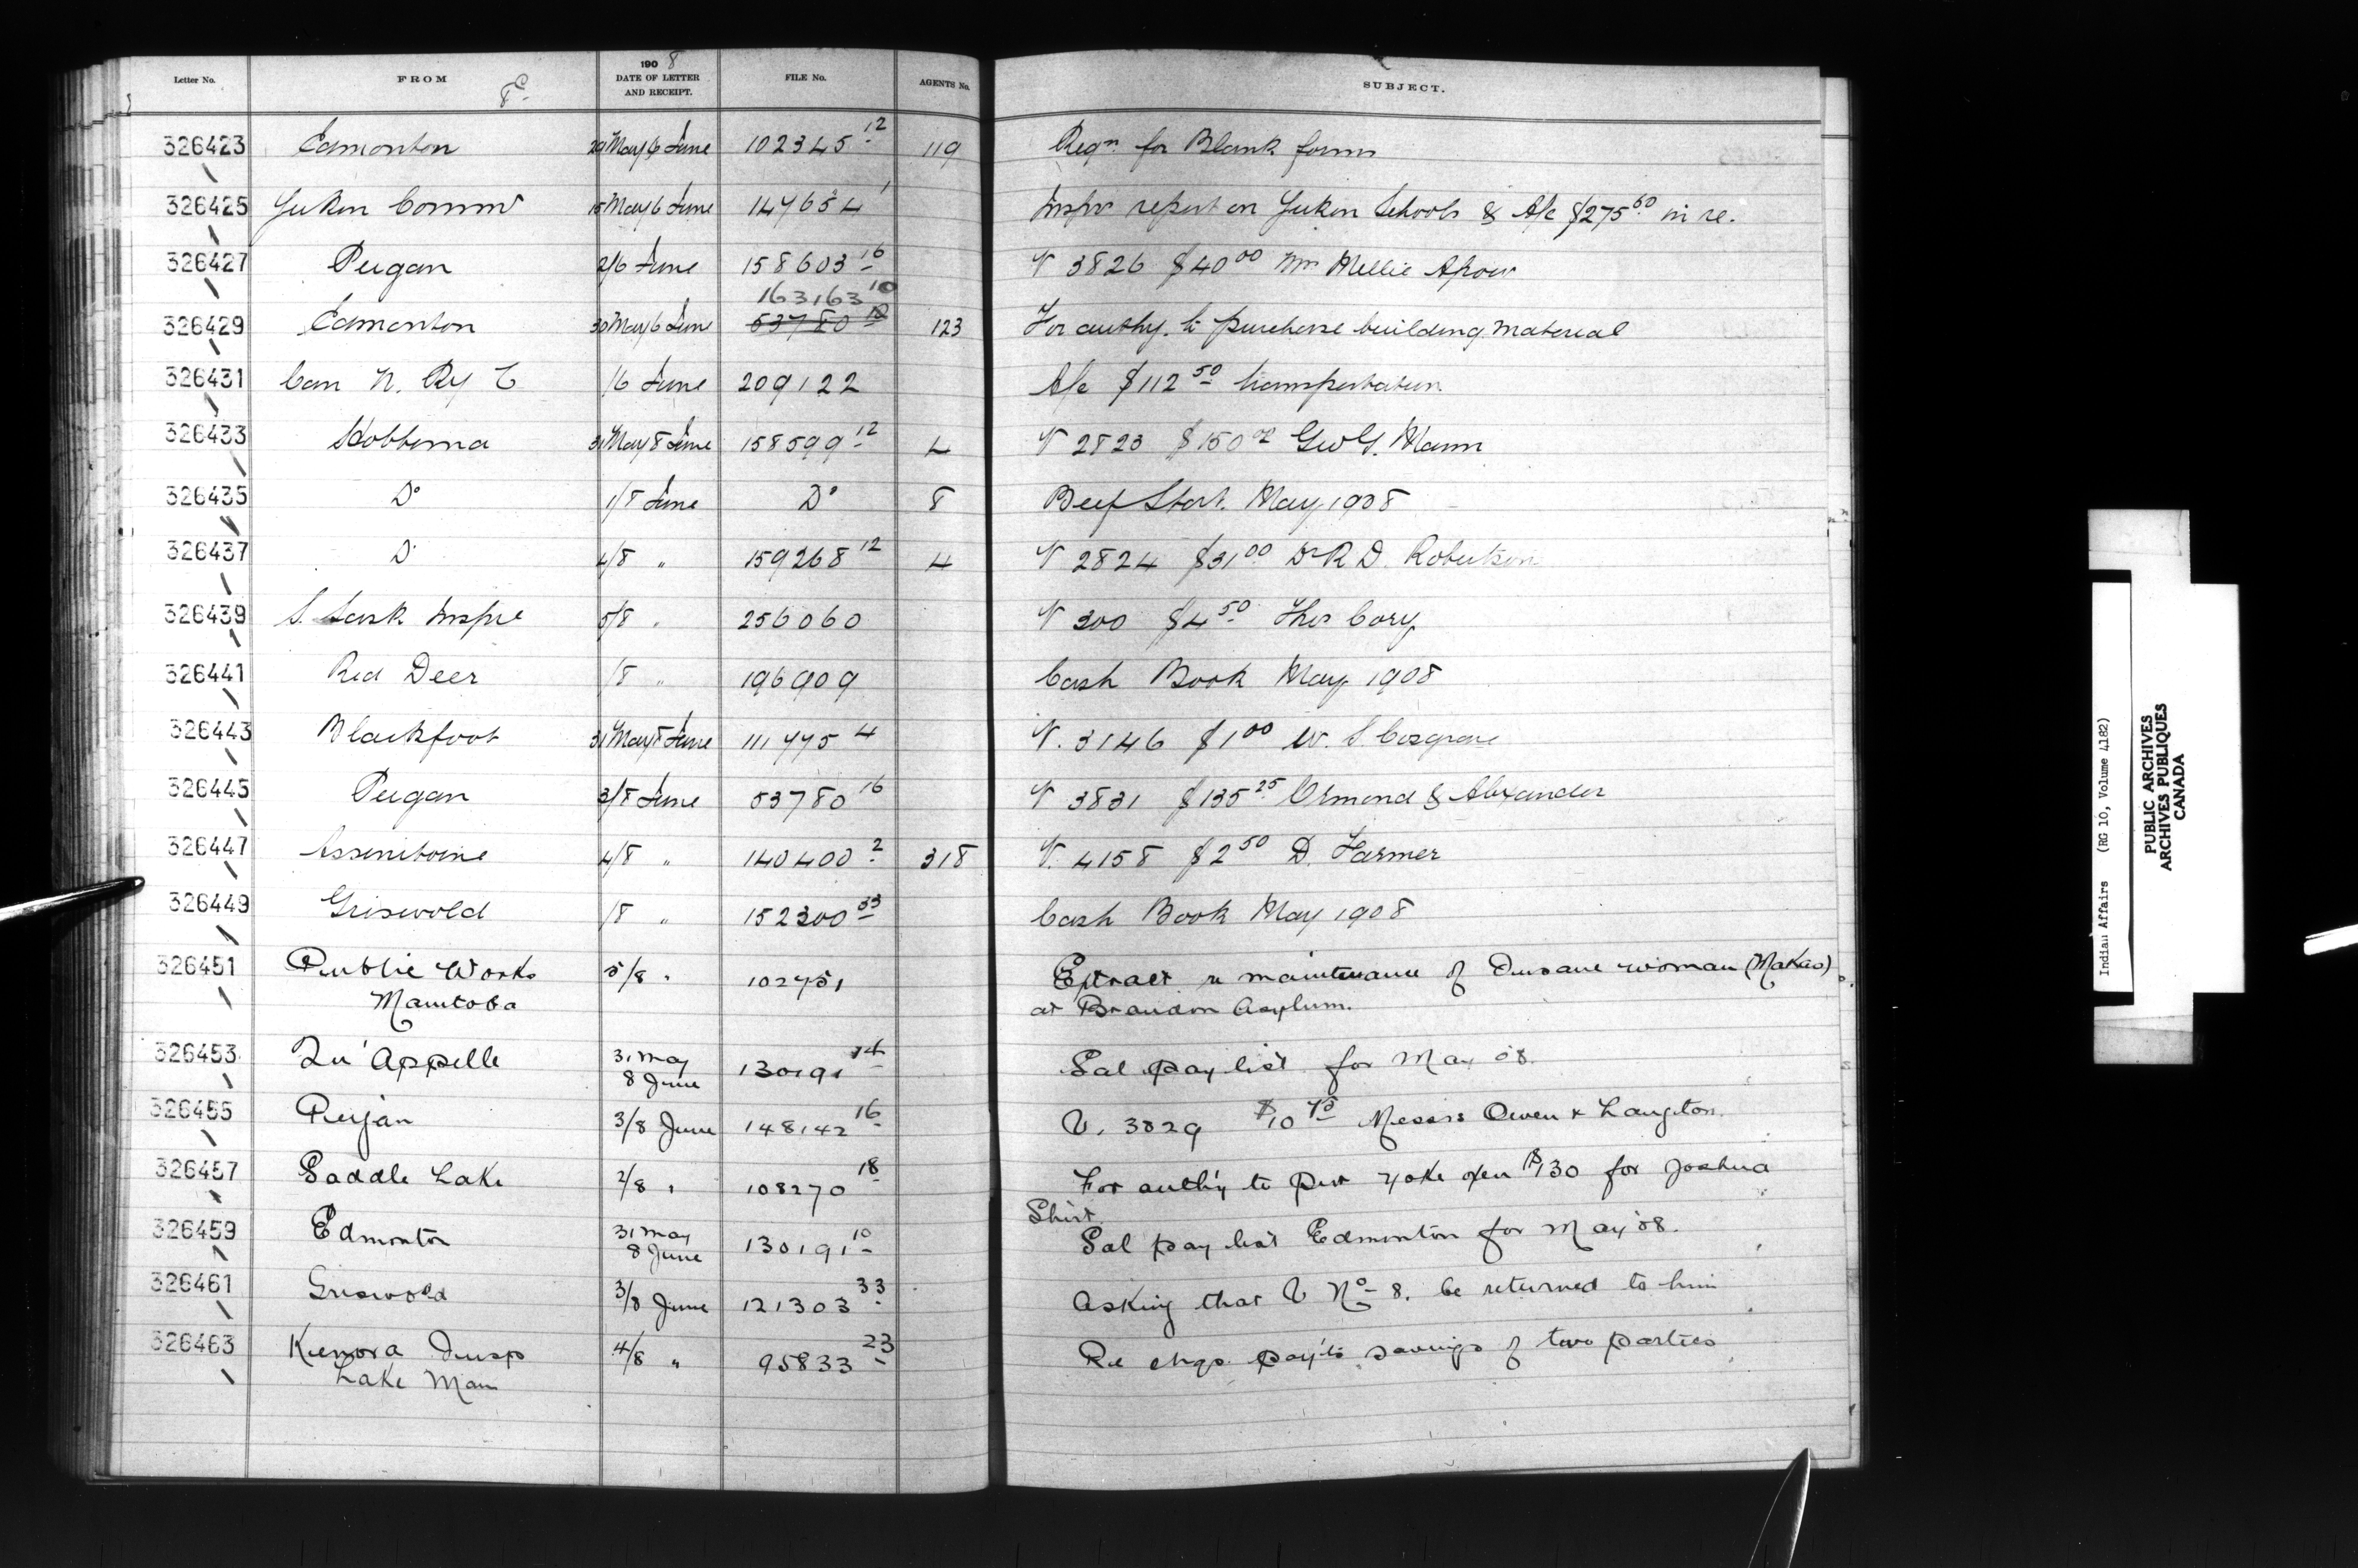 Letter No. FROM 1908 DATE OF LETTER AND RECEIPT. FILE No. AGENTS No. SUBJECT.
8
326423 Edmonton 29 May 6 June 102345 12 119 Reqn for Blank forms
326425 Yukon Commr 15 May 6 June 147654 1 Inspr report on Yukon Schools & A/c $275 50 in re.
326427 Peigan 2/6 June 158603 16 V 3826 $40 00 Mrs Nellie
163163 10
326429 Edmonton 30 May 6 June 53780 10 123 For authy. to purchase building material
326431 Can N. Ry C /6 June 209122 A/c $112 50 transportation
326433 Hobbema 31 May 8 June 158599 12 4 V 2823 $150 Geo G. Mann
326435 Do 1/8 June Do 8 Beef Stat. May 1908
326437 Do 4/8 " 159268 12 4 V 2824 $31 00 Dr R D. Robertson
326439 S. Sask Inspr 5/8 " 256060 V 300 $4 50 Thos Cory
326441 Red Deer /8 " 196909 Cash Book May 1908
326443 Blackfoot 31 May 8 June 111775 4 V. 3146 $1 00 W. S. Cosgrave
326445 Peigan 3/8 June 53780 16 V 3831 $135 25 Ormond & Alexander
326447 Assiniboine 4/8 " 140400 2 318 V. 4158 $2 50 D. Farmer
326449 Griswold /8 " 152300 33 Cash Book May 1908
326451 Public Works 5/8 " 102751 Extract re maintenance of Insane woman (Makas)
Manitoba at Brandon Asylum.
326453 Qu'Appelle 31 May 8 June 130191 14 Sal pay list for May 08.
326455 Peigan 3/8 June 148142 16 V. 3829 $10 75 Messrs Owen & Langton.
326457 Saddle Lake 2/8 " 108270 18 For auth'y to pur yoke oxen $130 for Joshua
Shirt
326459 Edmonton 31 May 8 June 130191 10 Sal pay list Edmonton for May '08.
326461 Griswold 3/8 June 121303 33 Asking that V No 8. be returned to him
326463 Kenora Insp 4/8 " 95833 23 Re chgs. pay'ts savings of two parties
Lake Man
Indian Affairs (RG 10, Volume 4182)
PUBLIC ARCHIVES
ARCHIVES PUBLIQUES
CANADA